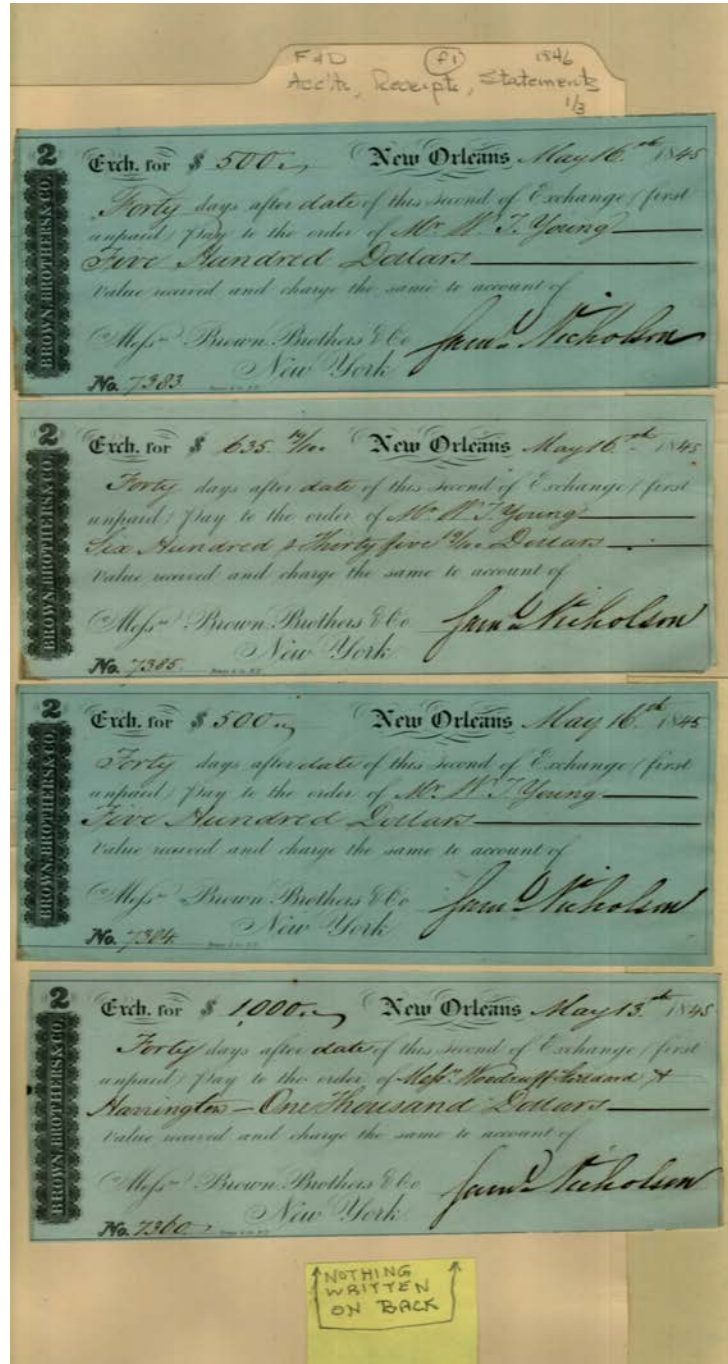 F & D f1 1846
Acc'ts, Receipts, Statements
1/3
2
BROWN, BROTHERS & CO.
Exch. for $ 500 New Orleans May 16th 1845
Forty days after date of this second of Exchange (first
unpaid) Pay to the order of Mr W. T. Young
Five Hundred Dollars
Value received and charge the same to account of
Messrs Brown Brothers & Co Saml Nicholson
New York
No. 7383
2
BROWN, BROTHERS & CO.
Exch. for $ 635. New Orleans May 16th 1845
Forty days after date of this second of Exchange (first
unpaid) Pay to the order of Mr W T Young
Six Hundred & Thirty five Dollars
Value received and charge the same to account of
Messrs Brown Brothers & Co Saml Nicholson
New York
No. 7385
2
BROWN, BROTHERS & CO.
Exch. for $ 500 New Orleans May 16th 1845
Forty days after date of this second of Exchange (first
unpaid) Pay to the order of Mr W T Young
Five Hundred Dollars
Value received and charge the same to account of
Messrs Brown Brothers & Co Saml Nicholson
New York
No. 7384
2
BROWN, BROTHERS & CO.
Exch. for $ 1000 New Orleans May 13th 1845
Forty days after date of this second of Exchange (first
unpaid) Pay to the order of Messrs Woodruff &
Harrington – One Thousand Dollars
Value received and charge the same to account of
Messrs Brown Brothers & Co Saml Nicholson
New York
No. 7360
NOTHING
WRITTEN
ON BACK